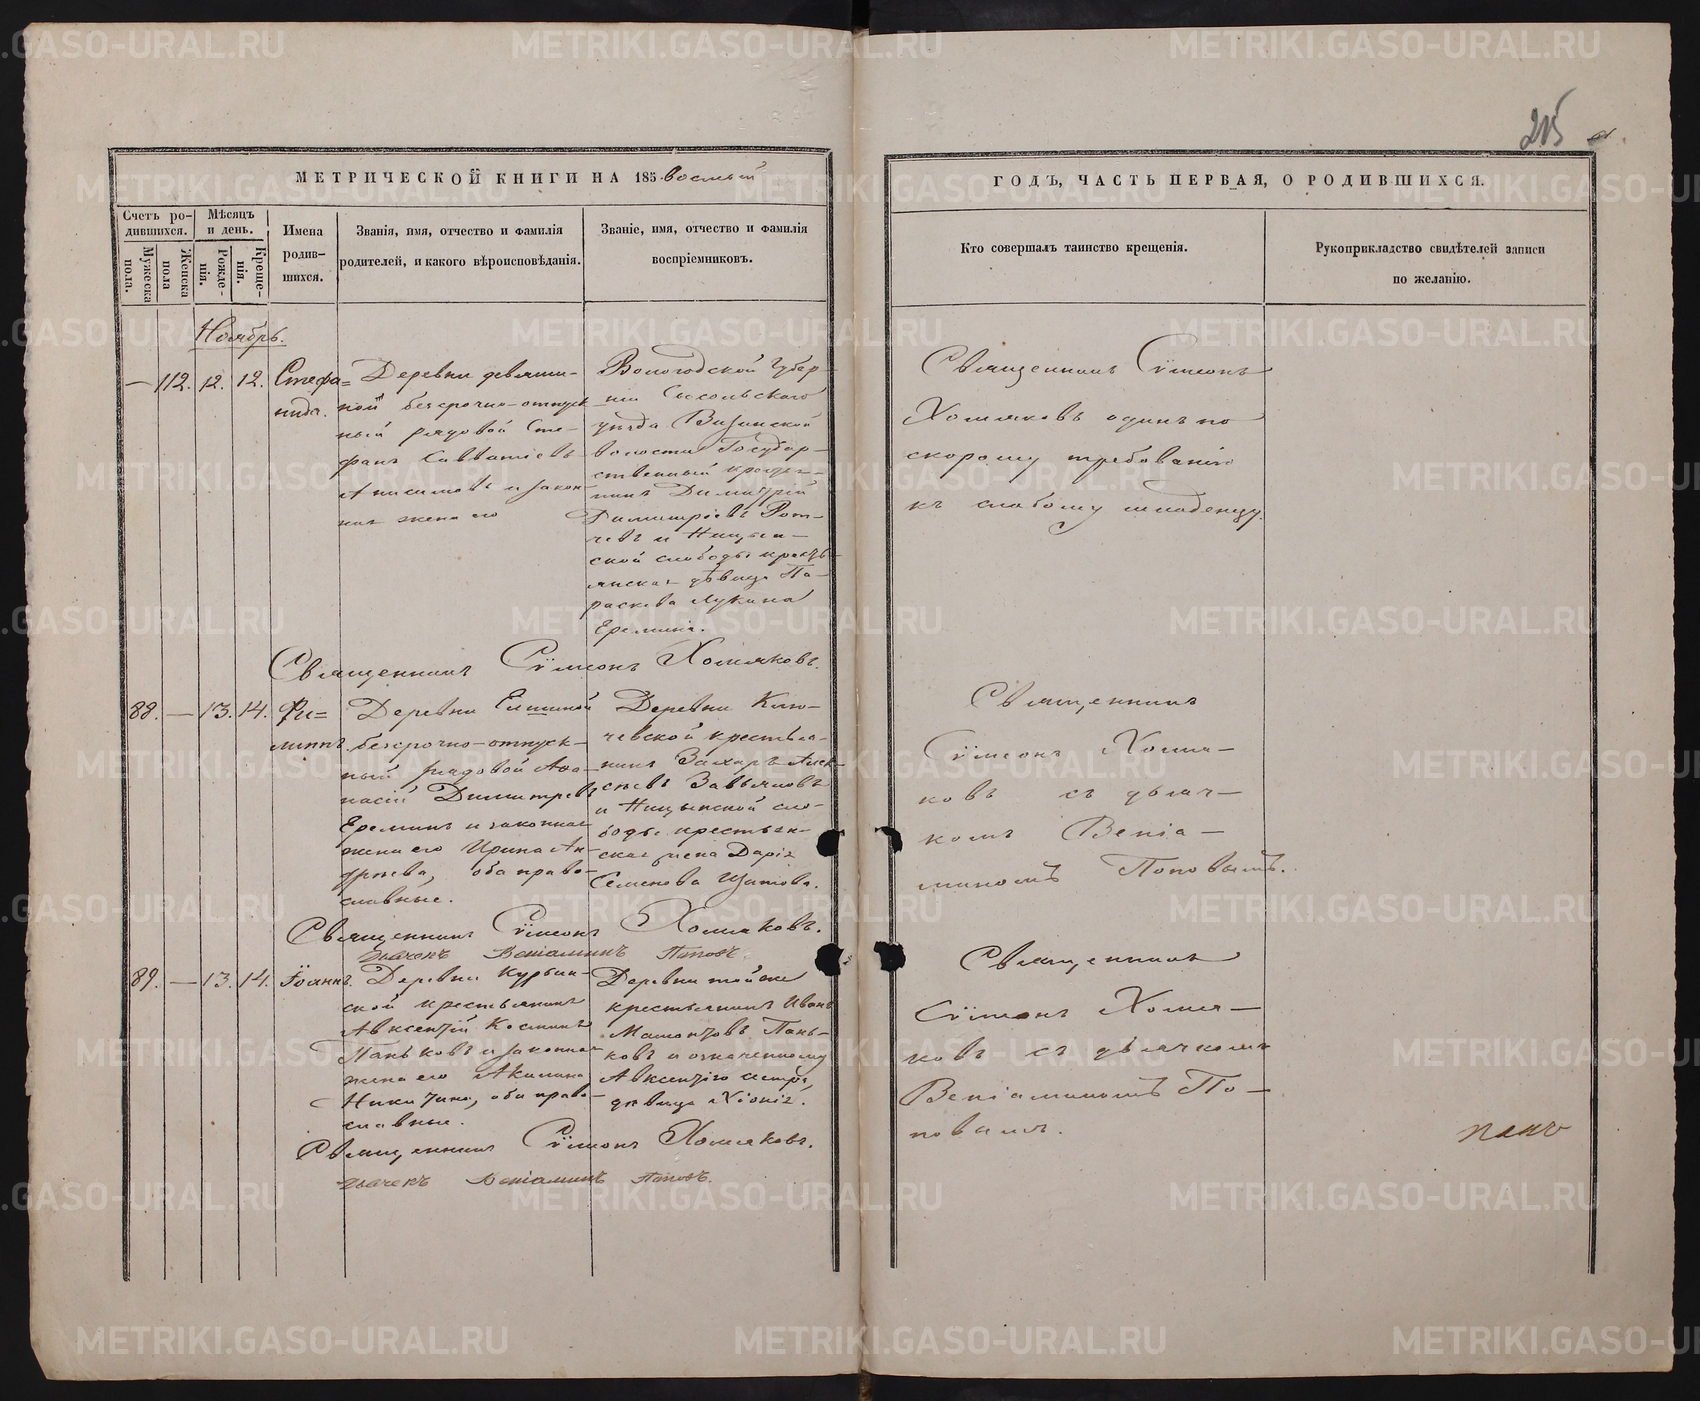 215
МЕТРИЧЕСКОЙ КНИГИ НА 185 восмый
ГОДЪ, ЧАСТЬ ПЕРВАЯ, О РОДИВШИХСЯ.
Счетъ ро-
дившихся.
Мужеска
пола.
Женска
пола
Мѣсяцъ
и день.
Рожде-
нія.
Креще-
нія.
Имена
родив-
шихся.
Званія, имя, отчество и фамилія
родителей, и какого вѣроисповѣданія.
Званіе, имя, отчество и фамилія
воспріемниковъ.
Кто совершалъ таинство крещенія.
Рукоприкладство свидѣтелей записи
по желанію.
Ноябрь.
— 112. 12. 12.
Стефа=
нида.
Деревни девяши-
ной безсрочно-отпуск
ный рядовой Сте-
фанъ Савватіевъ
Анисимовъ и закон
ная жена его
Вологодской Губер-
ніи Сысольскаго
уѣзда Визинской
волости Государ-
ственный крестья-
нинъ Димитрій
Димитріевъ
и Ницын-
ской слободы крестья-
янская дѣвица Па-
раскева Лукина
Еремина.
Священникъ Сѵмеонъ
Хомяковъ одинъ по
скорому требованію
къ слабому младенцу.
Священникъ Сѵмеонъ Хомяковъ.
88. — 13. 14.
Фи=
липпъ
Деревни Еминой
безсрочно-отпуск-
ный рядовой Аѳа-
насій Димитріевъ
Ереминъ и законная
жена его Ирина Ан-
дреева, оба право-
славные.
Деревни Клю-
чевской крестья-
нинъ Захаръ Алек-
сѣевъ Завьяловъ
и Ницынской сло-
боды крестьян-
ская жена Дарія
Семенова
Священникъ
Сѵмеонъ Хомя-
ковъ съ дьяч-
комъ Веніа-
миномъ Поповымъ.
Священникъ Сѵмеонъ Хомяковъ.
Дьячекъ Веніаминъ Поповъ.
89. — 13. 14.
Іоаннъ.
Деревни Курьин-
ской крестьянинъ
Авксентій Косминъ
Паньковъ и законная
жена его Акилина
Никитина, оба право-
славные.
Деревни тойже
крестьянинъ Иванъ
Мамонтовъ Пань-
ковъ и означенному
Авксентію сестра,
дѣвица Хіонія.
Священникъ
Сѵмеонъ Хомя-
ковъ съ дьячкомъ
Веніаминомъ По-
повымъ.
Священникъ Сѵмеонъ Хомяковъ.
Дьячекъ Веніаминъ Поповъ.
METRIKI.GASO-URAL.RU